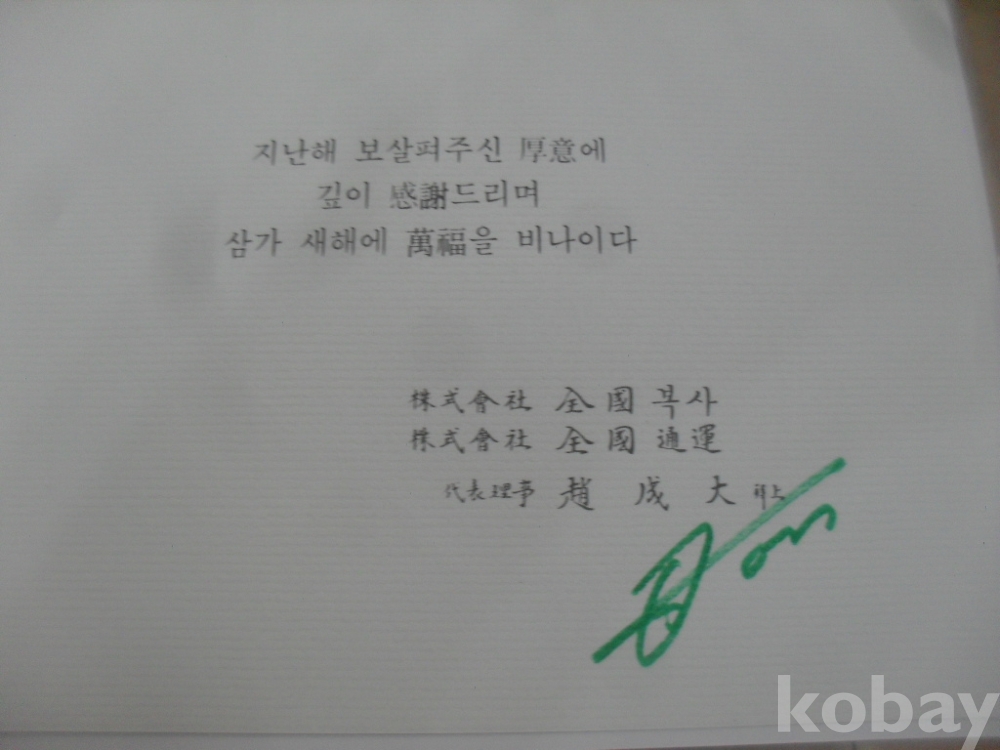 지난해 보살펴주신 厚意에
깊이 感謝드리며
삼가 새해에 萬福을 비나이다
株式會社 全國복사
株式會社 全國通運
代表理事 趙成大 拜上
kobay